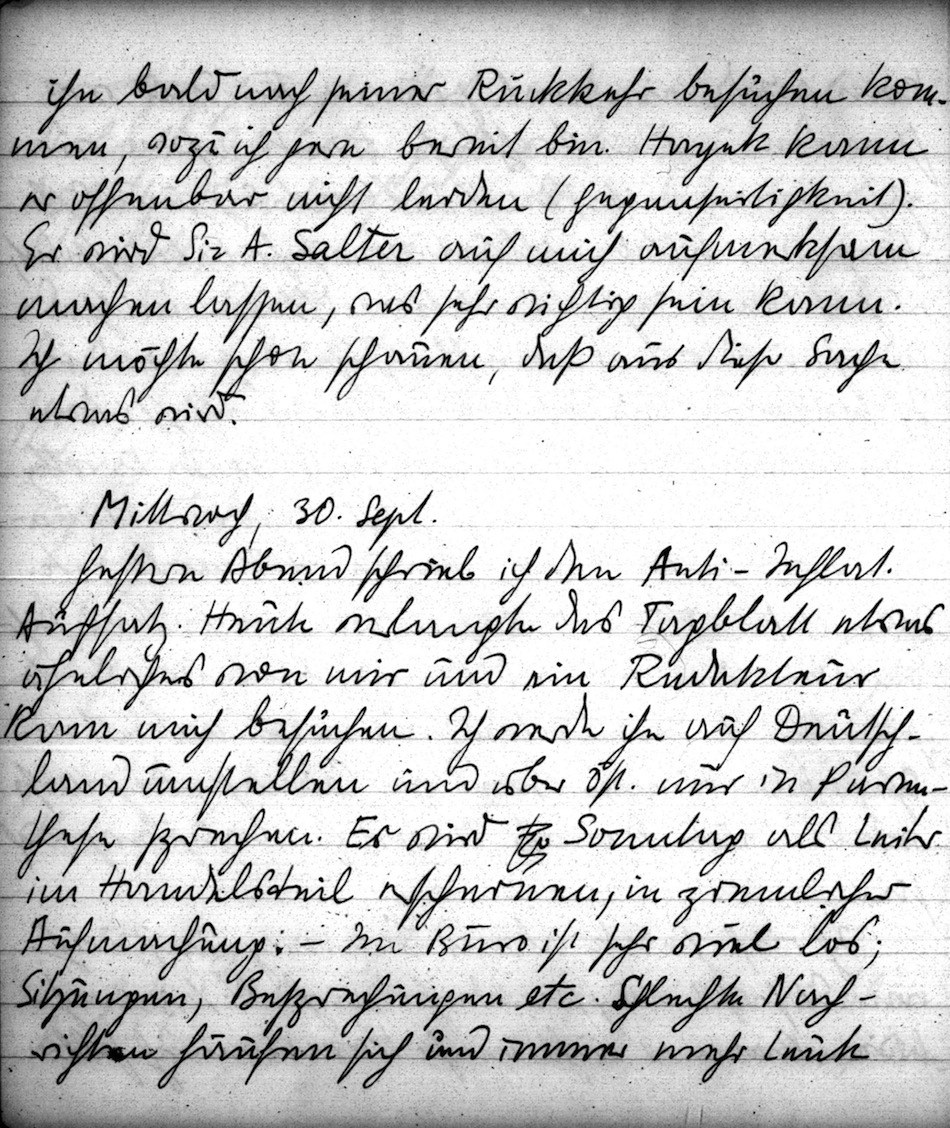 ihn bald nach seiner Rückkehr besuchen kom-
men, wozu ich gern bereit bin. Hayek kann
er offenbar nicht leiden (Gegenseitigkeit).
Er wird Sir A. Salter auf mich aufmerksam
machen lassen, was sehr wichtig sein kann.
Ich möchte schon schauen, daß aus dieser Sache
etwas wird.
Mittwoch, 30. Sept.
Gestern Abend schrieb ich den Anti-Inflat.
Aufsatz. Heute verlangte das Tagblatt etwas
ähnliches von mir und ein Redakteur
kam mich besuchen. Ich werde ihn auf Deutsch-
land umstellen und über Öst. nur in Paren-
these sprechen. Er wird Sonntag als Leiter
im Handelsteil erscheinen, in ziemlicher
Aufmachung. – Im Büro ist sehr viel los;
Sitzungen, Besprechungen etc. Schlechte Nach-
richten häufen sich und immer mehr Leute